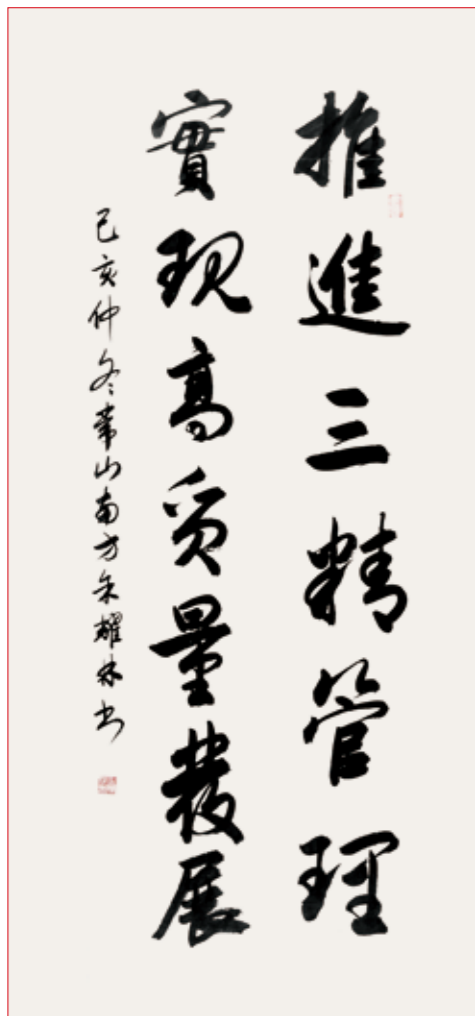 推進三精管理
實現高质量發展
己亥仲冬常山南方朱耀林书